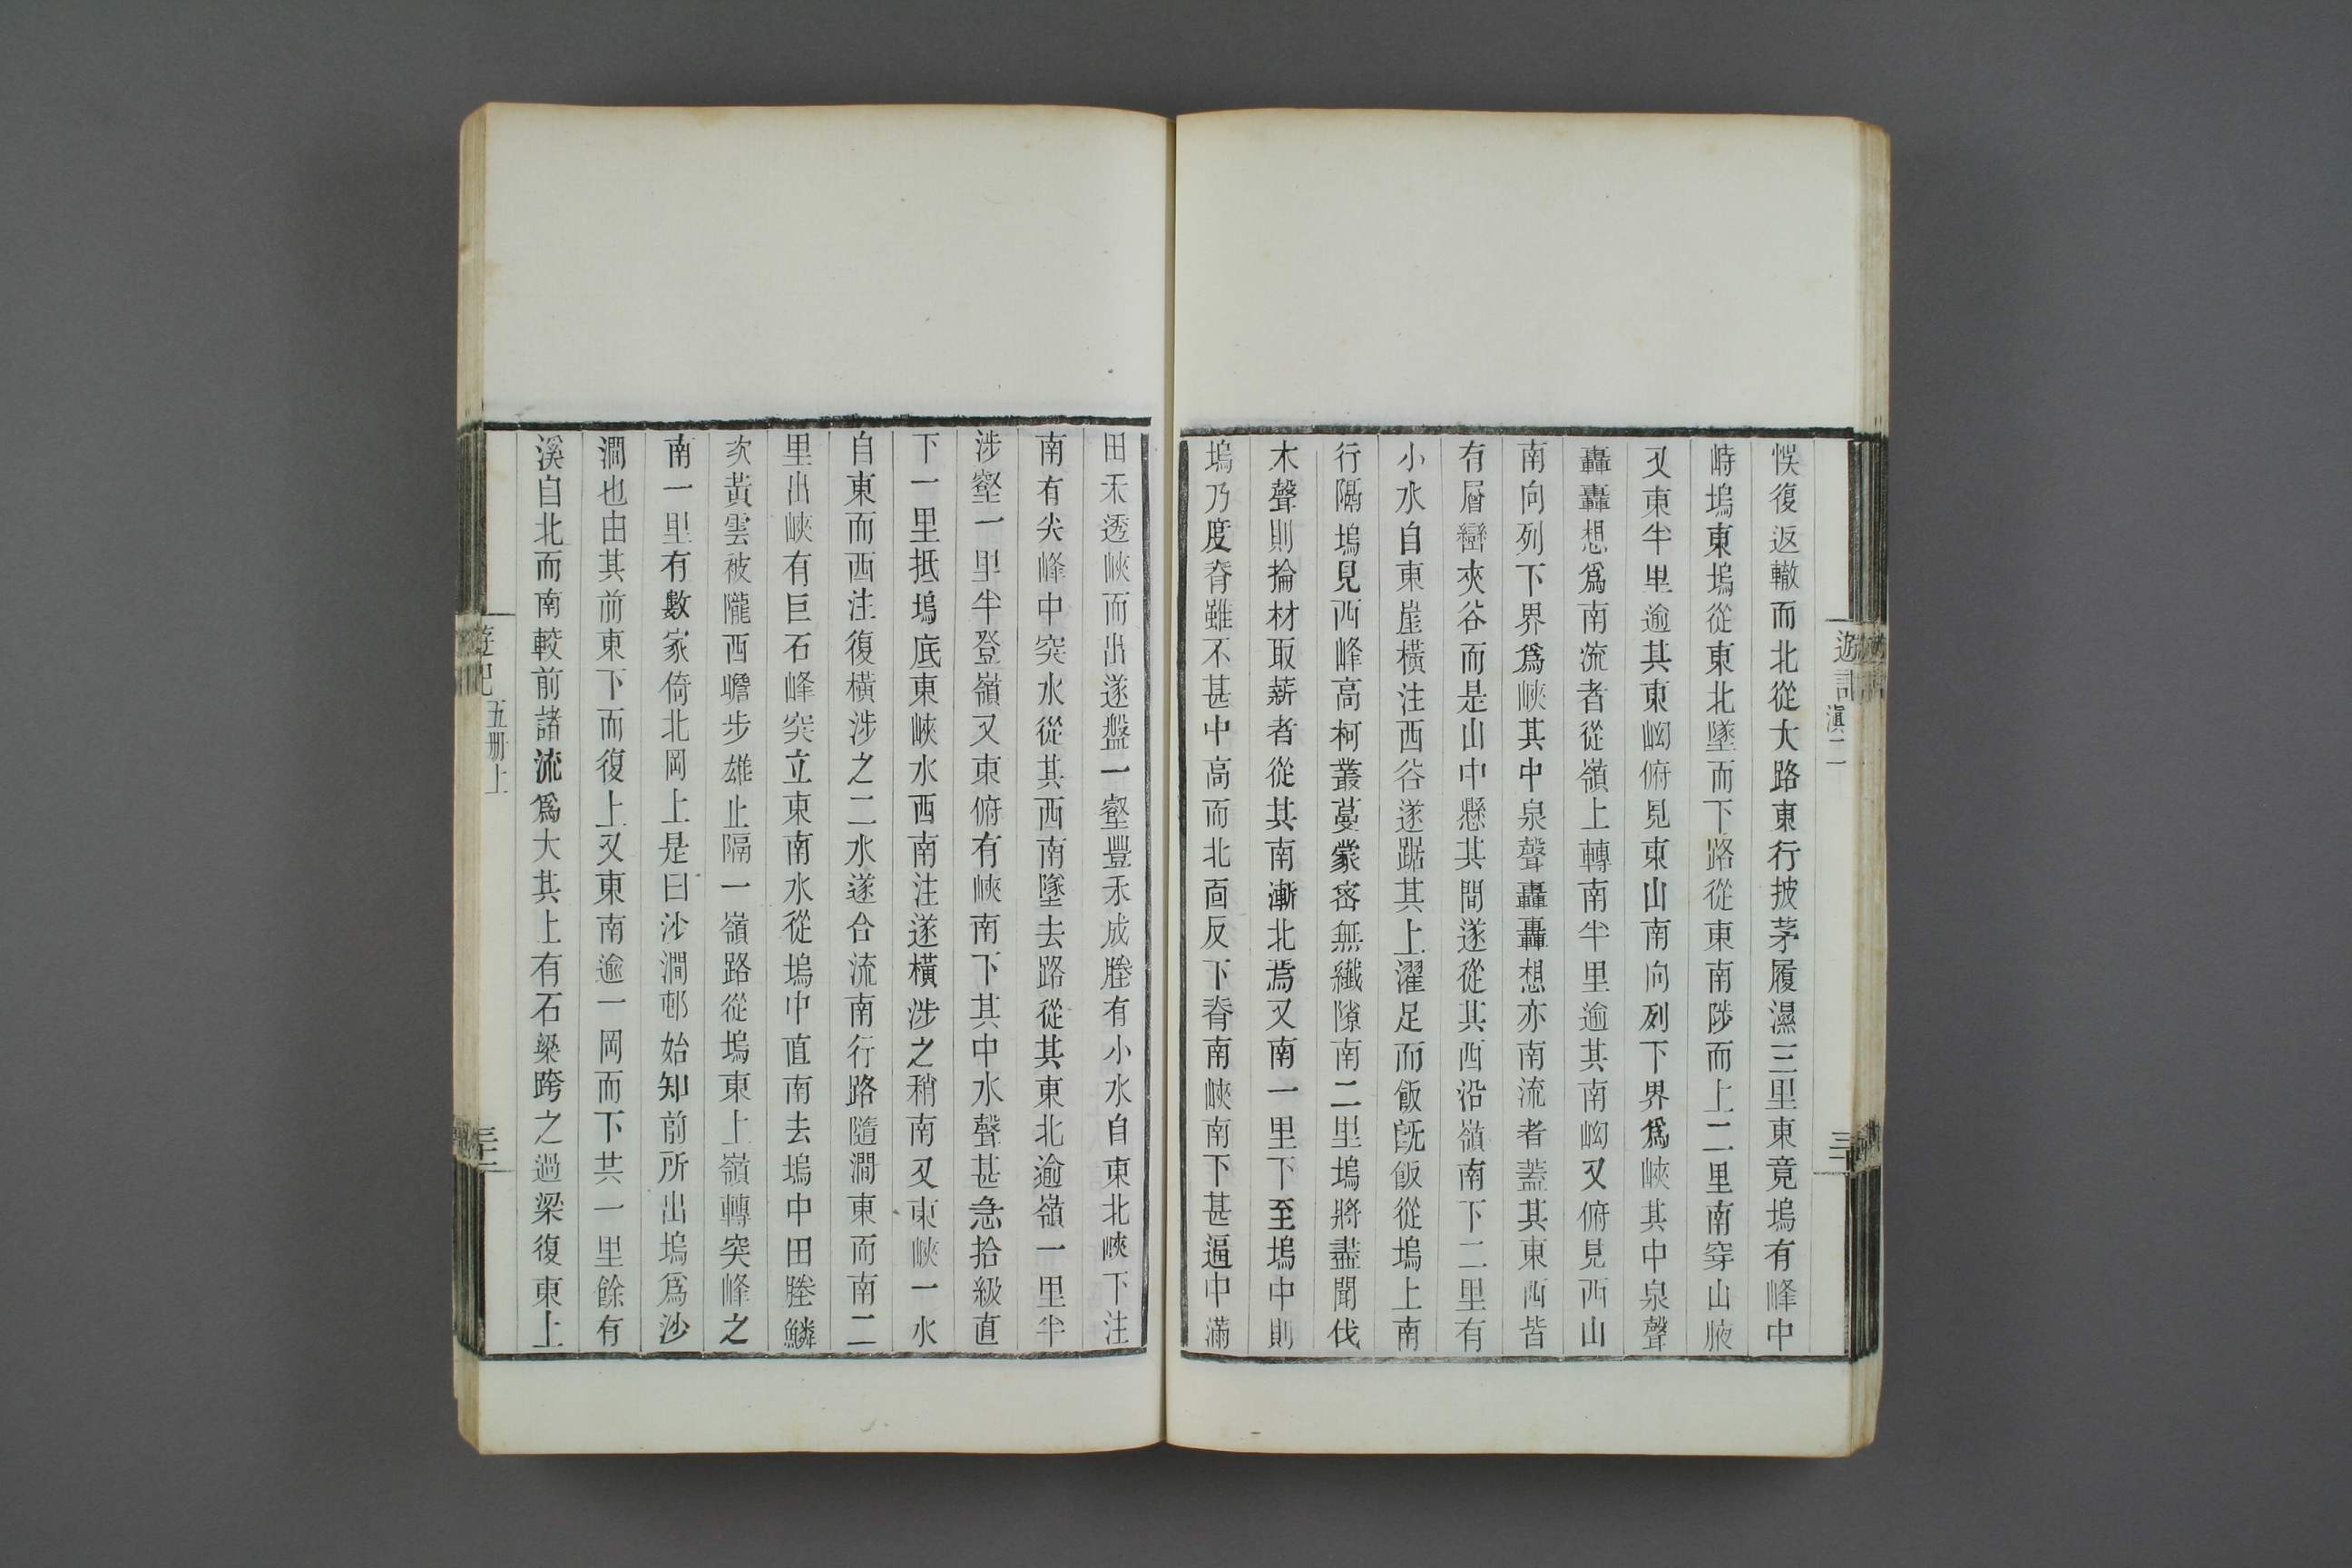 遊記 滇二 三十
悞復返轍而北從大路東行披茅履濕三里東竟塢有峰中
峙塢東塢從東北墜而下路從東南陟而上二里南穿山腋
又東半里逾其東㘭俯見東山南向列下界爲峽其中泉聲
轟轟想爲南流者從嶺上轉南半里逾其南㘭又俯見西山
南向列下界爲峽其中泉聲轟轟想亦南流者蓋其東西皆
有層巒夾谷而是山中懸其間遂從其西沿嶺南下二里有
小水自東崖橫注西谷遂踞其上濯足而飯旣飯從塢上南
行隔塢見西峰高柯叢蔓蒙密無纖隙南二里塢將盡聞伐
木聲則掄材取薪者從其南漸北焉又南一里下至塢中則
塢乃度脊雖不甚中高而北面反下脊南峽南下甚逼中滿
田禾透峽而出遂盤一壑豐禾成塍有小水自東北峽下注
南有尖峰中突水從其西南墜去路從其東北逾嶺一里半
涉壑一里半登嶺又東俯有峽南下其中水聲甚急拾級直
下一里抵塢底東峽水西南注遂橫涉之稍南又東峽一水
自東而西注復橫涉之二水遂合流南行路隨澗東而南二
里出峽有巨石峰突立東南水從塢中直南去塢中田塍鱗
次黃雲被隴西瞻步雄止隔一嶺路從塢東上嶺轉突峰之
南一里有數家倚北岡上是曰沙澗邨始知前所出塢爲沙
澗也由其前東下而復上又東南逾一岡而下共一里餘有
溪自北而南較前諸流爲大其上有石梁跨之過梁復東上
遊記 五册上